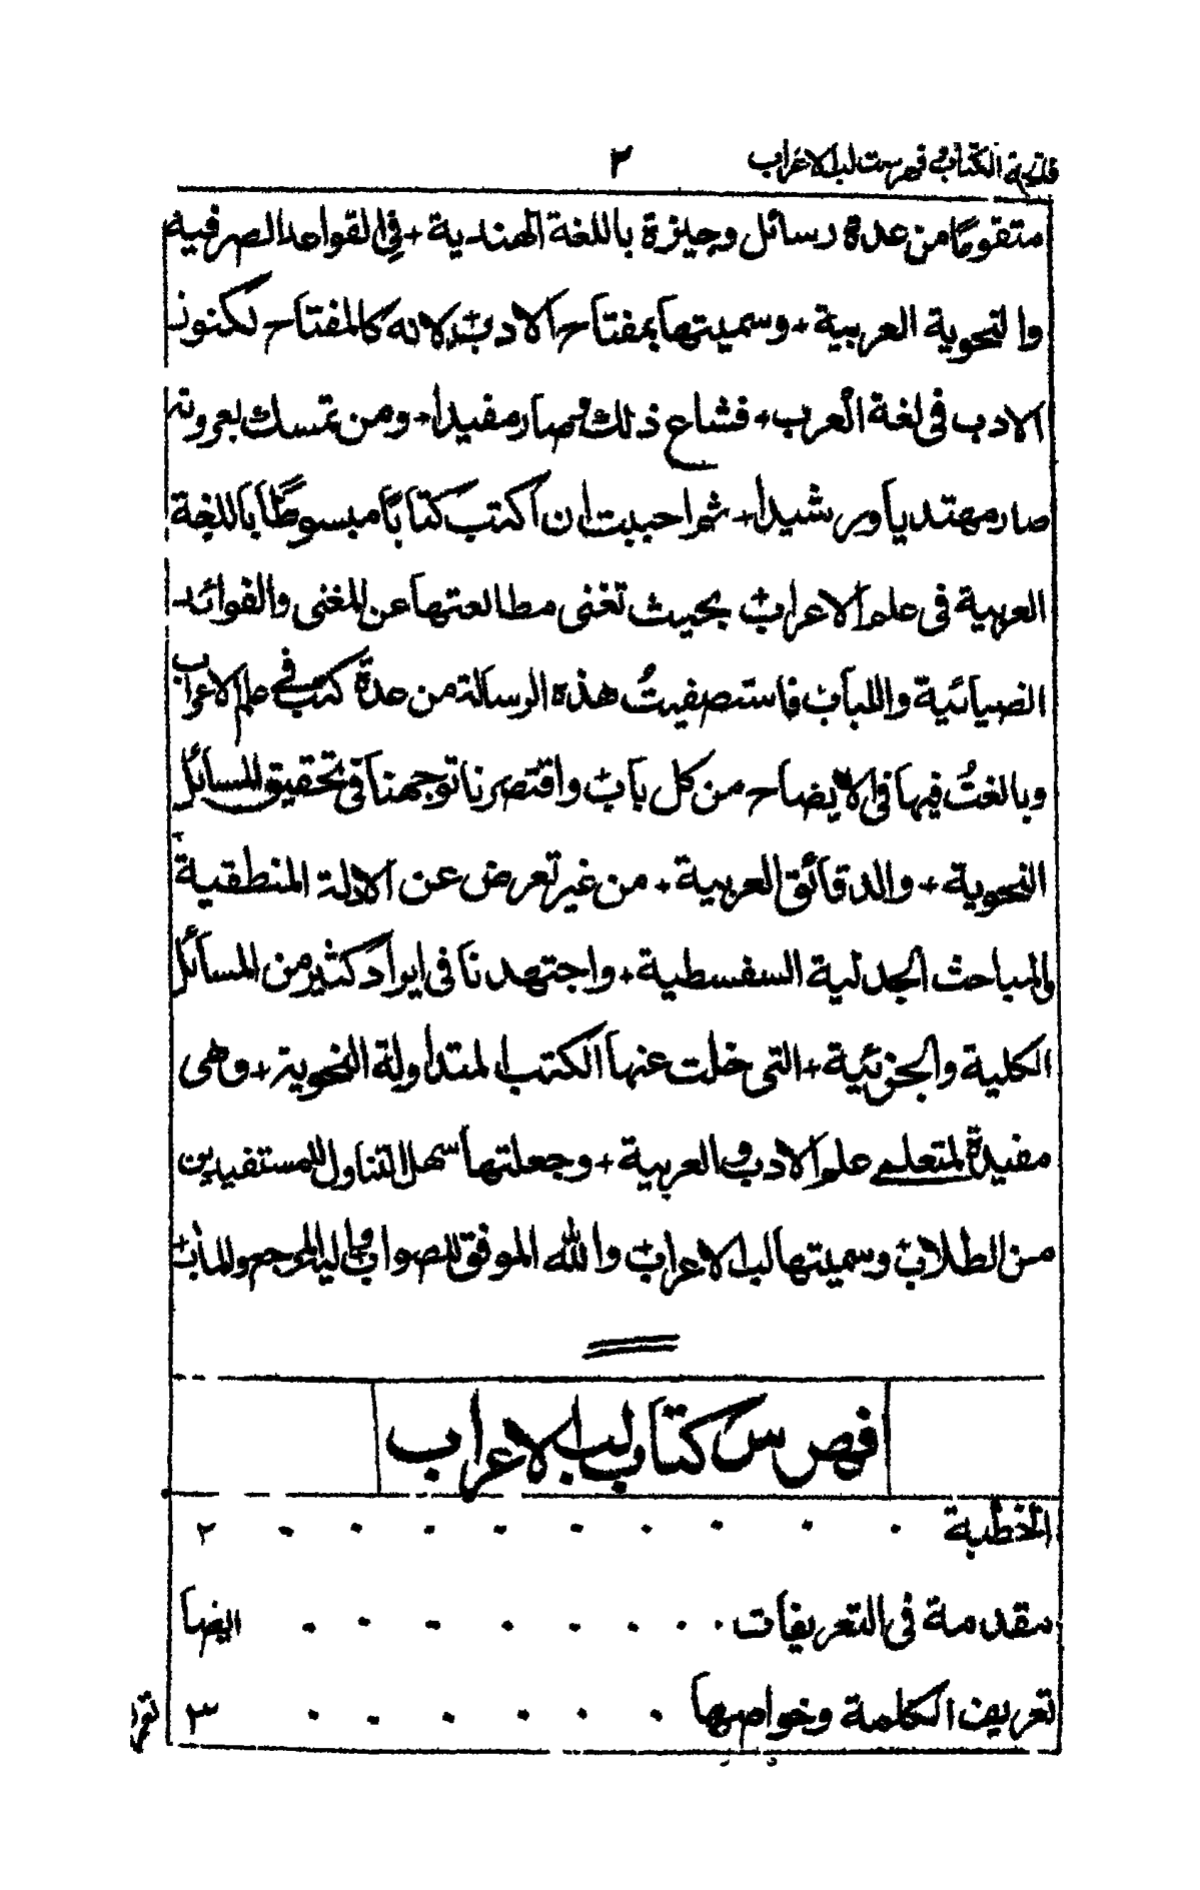 فاتحة الكتاب و فهرست لب الاعراب ٢
متقومًا من عدة رسائل وجيزة باللغة الهندية + في القواعد الصرفية
والنحوية العربية + وسميتها بمفتاح الادب + لانه كالمفتاح لكنوز
الادب في لغة العرب + فشاع ذلك وصار مفيدا + ومن تمسك بعروته
صار مهتديا ورشيدا + ثم احببت ان اكتب كتابًا مبسوطًا باللغة
العربية في علم الاعراب + بحيث تغنى مطالعتها عن المغنى والفوائد
الضيائية واللباب + فاستصفيتُ هذه الرسالة من عدة كتب في علم الاعراب
وبالغتُ فيها في الايضاح من كل باب + واقتصرنا توجهنا في تحقيق المسائل
النحوية + والدقائق العربية + من غير تعرض عن الادلة المنطقية
والمباحث الجدلية السفسطية + واجتهدنا في ايراد كثير من المسائل
الكلية والجزئية + التي خلت عنها الكتب المتداولة النحوية + وهى
مفيدة لمتعلمي علم الادب والعربية + وجعلتها سهل التناول للمستفيدين
من الطلاب + وسميتها لب الاعراب + والله الموفق للصواب + واليه المرجع والمآب +
فهرس كتاب لب الاعراب
الخطبة ٢
مقدمة في التعريفات ايضا
تعريف الكلمة وخواصها ٣